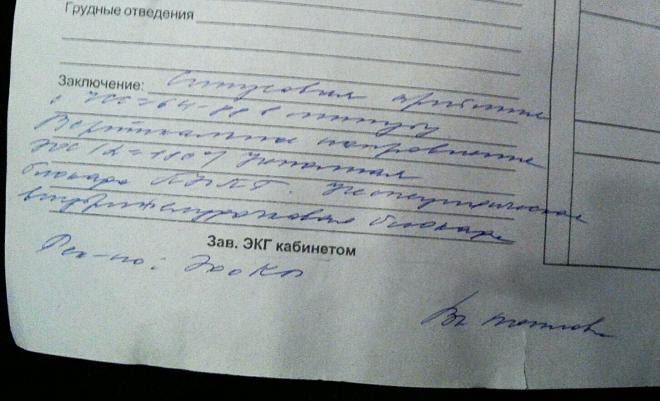 Грудные отведения
Заключение: Синусовая аритмия
с ЧСС=64-88 в минуту
Вертикальное направление
ЭОС Неполная
блокада ПНПГ. Неспецифическая
внутрижелудочковая блокада
Зав. ЭКГ кабинетом
Рек-но: ЭхоКГ